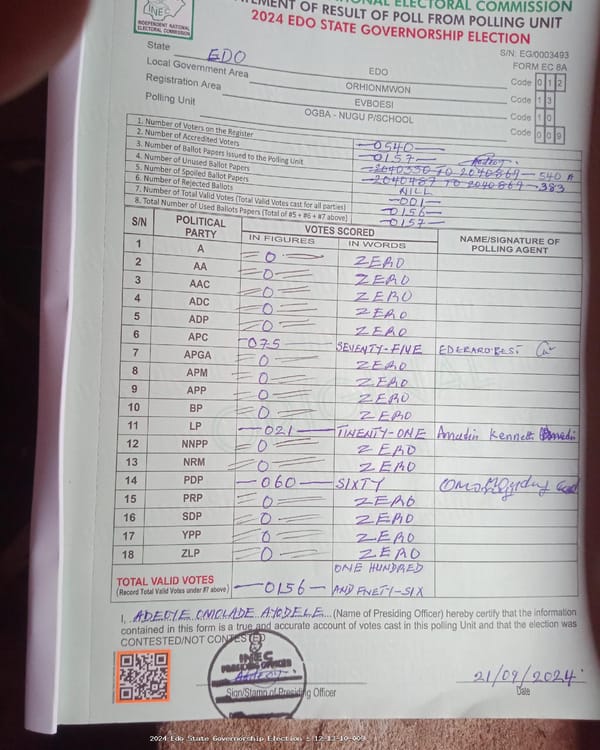 INEC
INDEPENDENT NATIONAL
ELECTORAL COMMISSION
NAL ELECTORAL COMMISSION
TEMENT OF RESULT OF POLL FROM POLLING UNIT
2024 EDO STATE GOVERNORSHIP ELECTION
S/N: EG/0003493
FORM EC 8A
State EDO
Local Government Area EDO Code 0 1 2
Registration Area ORHIONMWON Code 1 3
EVBOESI Code 1 0
Polling Unit OGBA - NUGU P/SCHOOL Code 0 0 9
1. Number of Voters on the Register 0540
2. Number of Accredited Voters 0157
3. Number of Ballot Papers Issued to the Polling Unit 2040330 TO 2040869 - 540
4. Number of Unused Ballot Papers 2040487 TO 2040869 - 383
5. Number of Spoiled Ballot Papers NILL
6. Number of Rejected Ballots 001
7. Number of Total Valid Votes (Total Valid Votes cast for all parties) 0156
8. Total Number of Used Ballots Papers (Total of #5 + #6 + #7 above) 0157
S/N POLITICAL PARTY VOTES SCORED NAME/SIGNATURE OF POLLING AGENT
IN FIGURES IN WORDS
1 A 0 ZERO
2 AA 0 ZERO
3 AAC 0 ZERO
4 ADC 0 ZERO
5 ADP 0 ZERO
6 APC 075 SEVENTY-FIVE
7 APGA 0 ZERO
8 APM 0 ZERO
9 APP 0 ZERO
10 BP 0 ZERO
11 LP 021 TWENTY-ONE Amadin Kenneth
12 NNPP 0 ZERO
13 NRM 0 ZERO
14 PDP 060 SIXTY
15 PRP 0 ZERO
16 SDP 0 ZERO
17 YPP 0 ZERO
18 ZLP 0 ZERO
TOTAL VALID VOTES
(Record Total Valid Votes under #7 above) 0156 ONE HUNDRED AND FIFETY-SIX
I, ADEOYE OMOLADE AYODELE (Name of Presiding Officer) hereby certify that the information
contained in this form is a true and accurate account of votes cast in this polling Unit and that the election was
CONTESTED/NOT CONTESTED
INEC
PRESIDING OFFICER
Sign/Stamp of Presiding Officer
21/09/2024
Date
2024 Edo State Governorship Election - 12-13-10-009